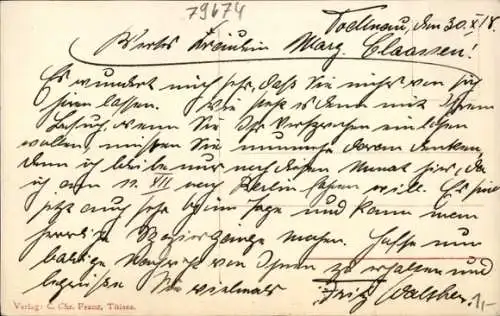 79674
Todtnau, den 30. X. 18.
Wertes Fräulein Marg. Claassen!
Es wundert mich sehr, daß Sie nichts von sich
hören lassen. Wie steht es denn mit Ihrem
Besuch, wenn Sie Ihr Versprechen einlösen
wollen, müssen Sie nunmehr daran denken,
denn ich bleibe nur noch diesen Monat hier, da
ich am 11. XII nach Berlin fahren will. Es sind
jetzt auch sehr schöne Tage und kann man
herrliche Spaziergänge machen. Hoffe nun
baldige Nachricht von Ihnen zu erhalten und
begrüße Sie vielmals
Fritz Walther.
1,-
Verlag: C. Chr. Franz, Titisee.